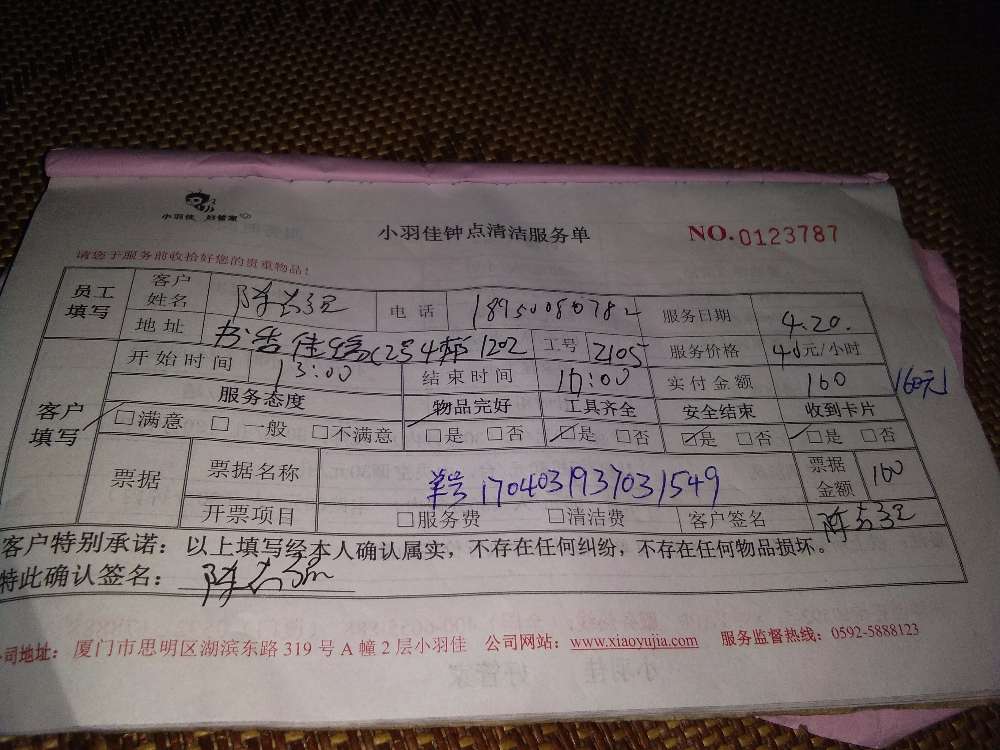 小羽佳 好管家
小羽佳钟点清洁服务单 NO.0123787
请您于服务前收拾好您的贵重物品！
员工填写 客户姓名 电话 18950080782 服务日期 4.20.
地址 12号4栋1202 工号 2105 服务价格 40元/小时
开始时间 13:00 结束时间 17:00 实付金额 160 160元
客户填写 服务态度 物品完好 工具齐全 安全结束 收到卡片
□满意 □一般 □不满意 □是 □否 □是 □否 □是 □否 □是 □否
票据 票据名称 单号 1704031937031549 票据金额 160
开票项目 □服务费 □清洁费 客户签名
客户特别承诺：以上填写经本人确认属实，不存在任何纠纷，不存在任何物品损坏。
特此确认签名：
公司地址：厦门市思明区湖滨东路319号A幢2层小羽佳 公司网站：www.xiaoyujia.com 服务监督热线：0592-5888123